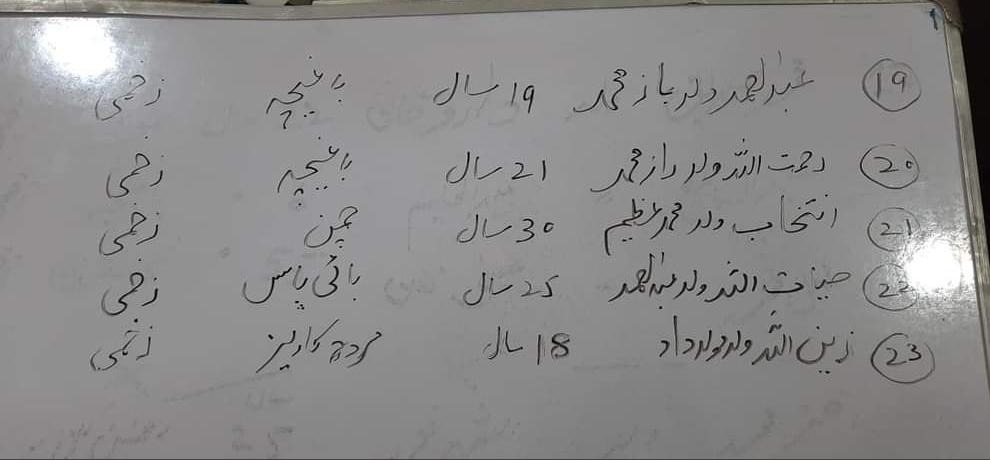 19 عبدالصمد ولد باز محمد 19 سال باغیچہ زخمی
20 رحمت اللہ ولد راز محمد 21 سال باغیچہ زخمی
21 انتخاب ولد محمد عظیم 30 سال چمن زخمی
22 حیات اللہ ولد عبدالصمد 25 سال بائی پاس زخمی
23 زین اللہ ولد مولاداد 18 سال مردہ کاریز زخمی